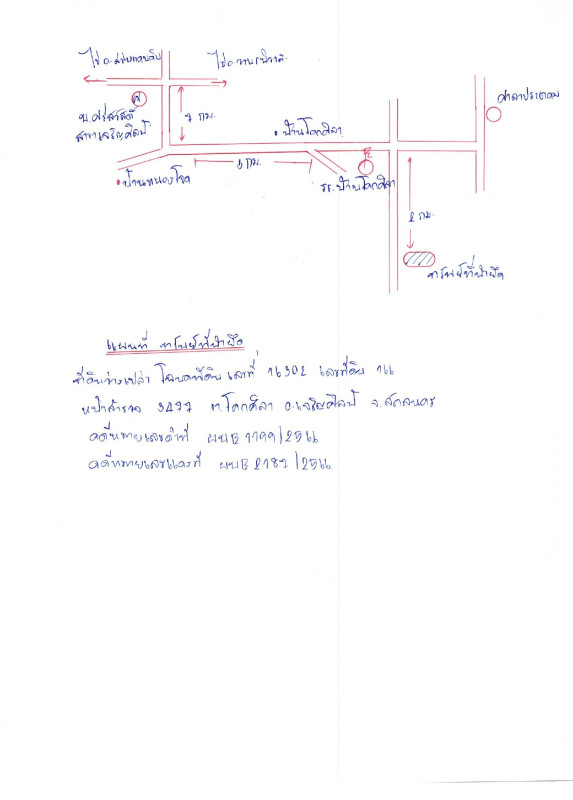 ไป อ.สว่างแดนดิน
ไป อ.วานรนิวาส
ศาลาประชาคม
บ.ศรีสวัสดิ์
สาขาเจริญศิลป์
7 กม.
บ้านโคกศิลา
6 กม.
บ้านหนอง
รร.บ้านโคกศิลา
2 กม.
ทรัพย์ที่นำยึด
แผนที่ ทรัพย์ที่นำยึด
ที่ดินว่างเปล่า โฉนดที่ดิน เลขที่ 16302 เลขที่ดิน 166
หน้าสำรวจ 3477 ต.โคกศิลา อ.เจริญศิลป์ จ.สกลนคร
คดีหมายเลขดำที่ ผบE 1199/2566
คดีหมายเลขแดงที่ ผบE 2182/2566